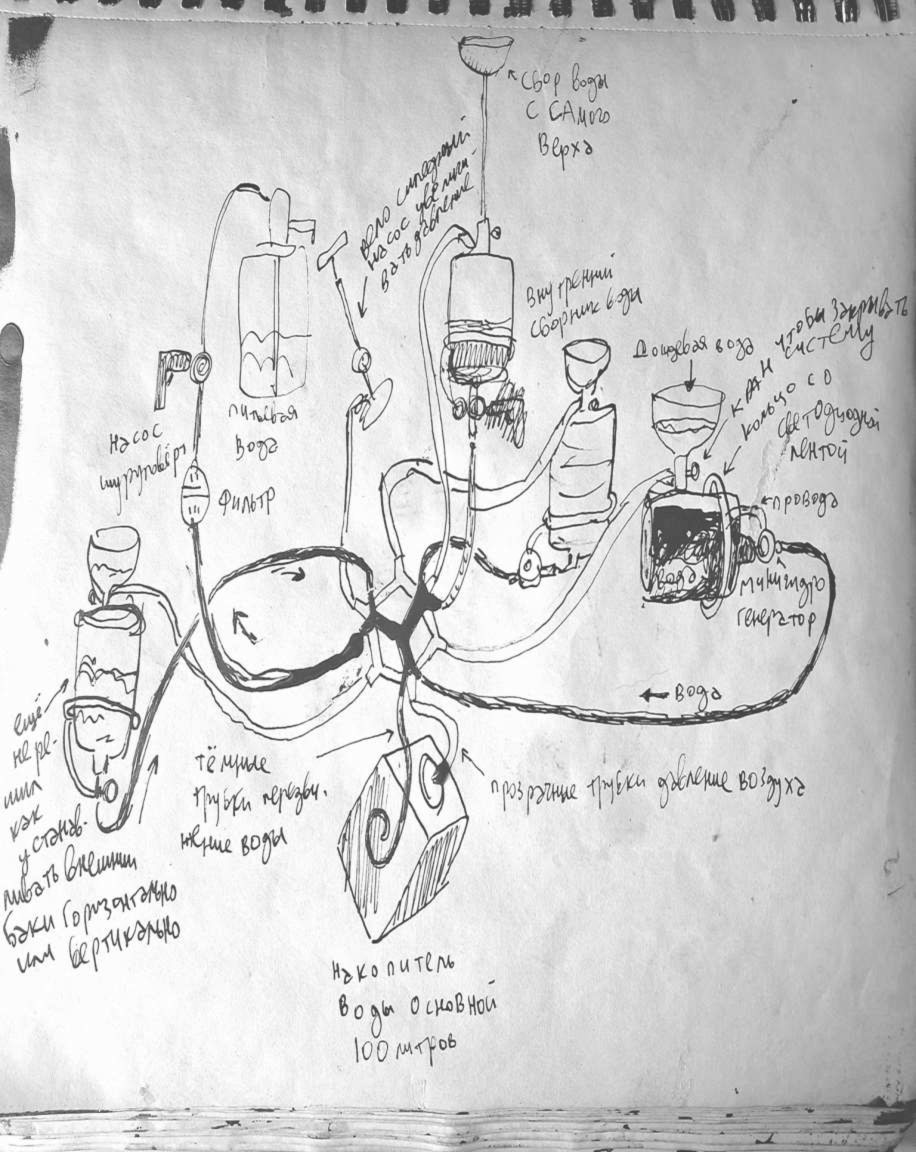 сбор воды
с самого
верха
велосипедный
насос увеличи-
вать давление
внутренний
сборник воды
Дождевая вода
кран чтобы закрывать
систему
кольцо со
светодиодной
лентой
провода
насос
шуруповёрт
питьевая
вода
фильтр
вода
минигидро
генератор
← вода
ещё
не ре-
шил
как
устанав-
ливать внешнии
баки горизонтально
или вертикально
тёмные
трубки передви-
жение воды
прозрачные трубки давление воздуха
накопитель
воды основной
100 литров